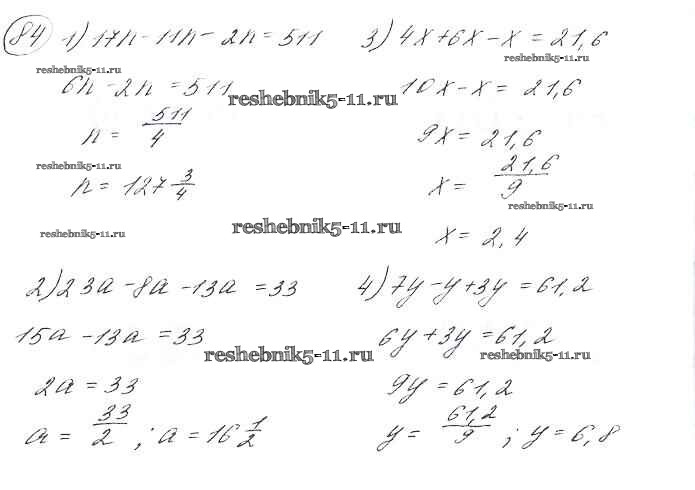 84 1) 17n - 11n - 2n = 511
reshebnik5-11.ru
6n - 2n = 511
n = 511/4
reshebnik5-11.ru
n = 127 3/4
reshebnik5-11.ru
2) 23a - 8a - 13a = 33
15a - 13a = 33
2a = 33
a = 33/2 ; a = 16 1/2
reshebnik5-11.ru
reshebnik5-11.ru
reshebnik5-11.ru
3) 4x + 6x - x = 21,6
reshebnik5-11.ru
10x - x = 21,6
9x = 21,6
x = 21,6/9
reshebnik5-11.ru
x = 2,4
4) 7y - y + 3y = 61,2
6y + 3y = 61,2
reshebnik5-11.ru
9y = 61,2
y = 61,2/9 ; y = 6,8